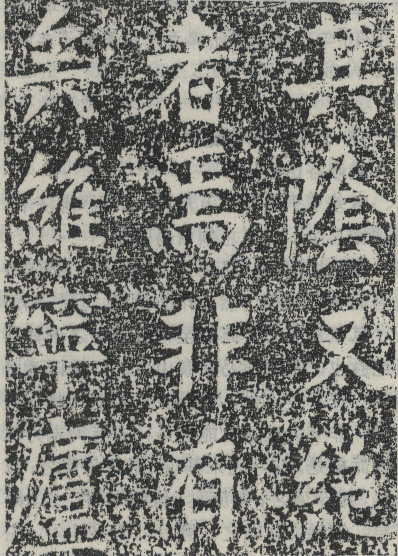 其陰又絶
者焉非有
矣維寧廬